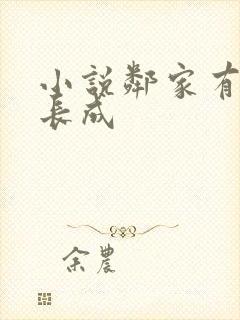 小説鄰家有
長成
余農